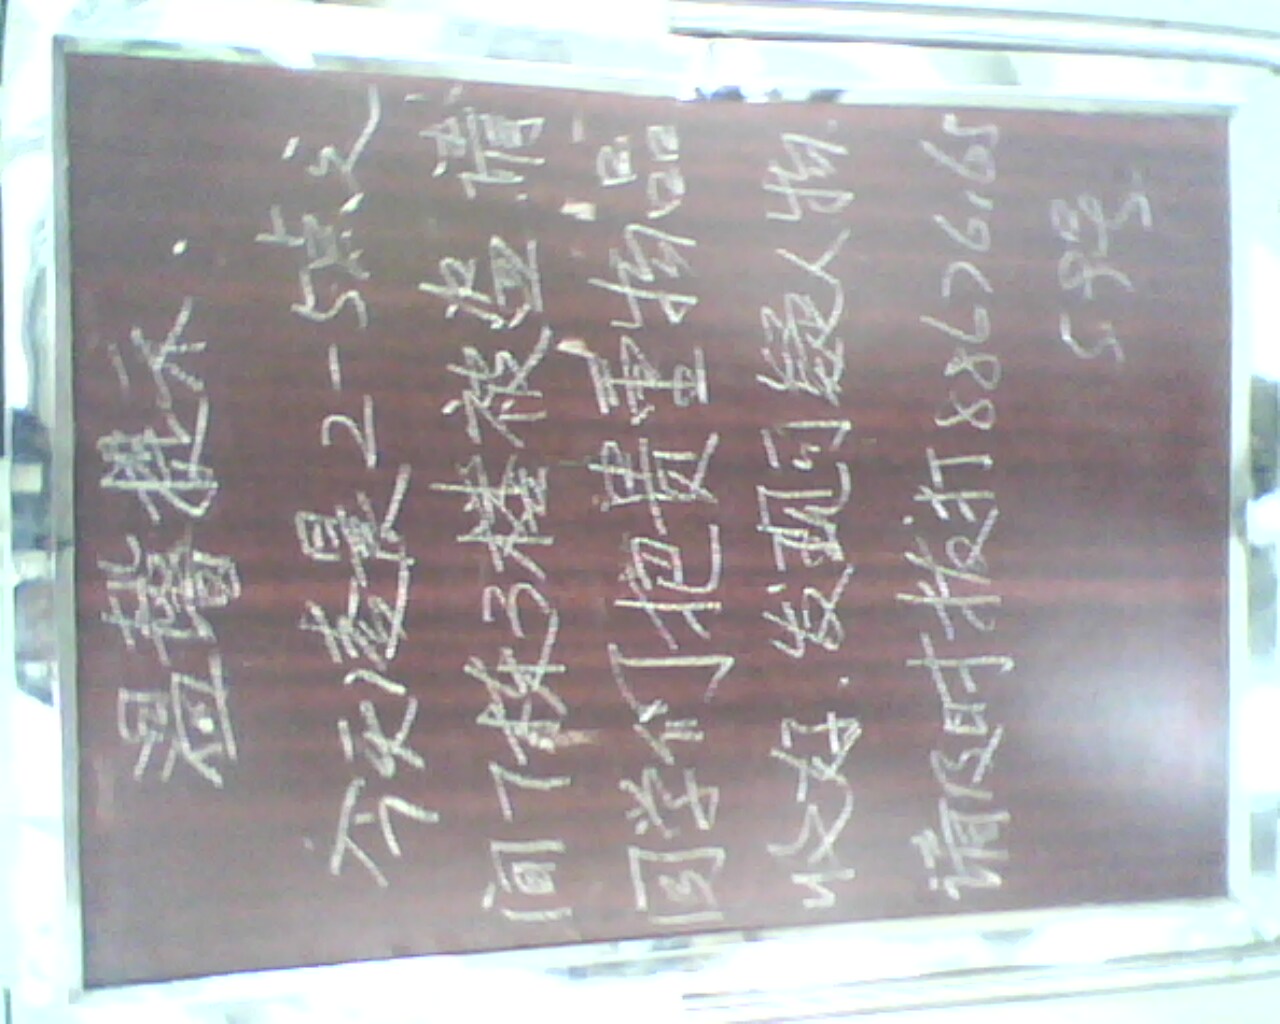 温馨提示.
今天凌晨2-5点之
间7栋3楼被盗 请
同学们把贵重物品
收好.发现可疑人物.
请及时报打88676165
5 8号